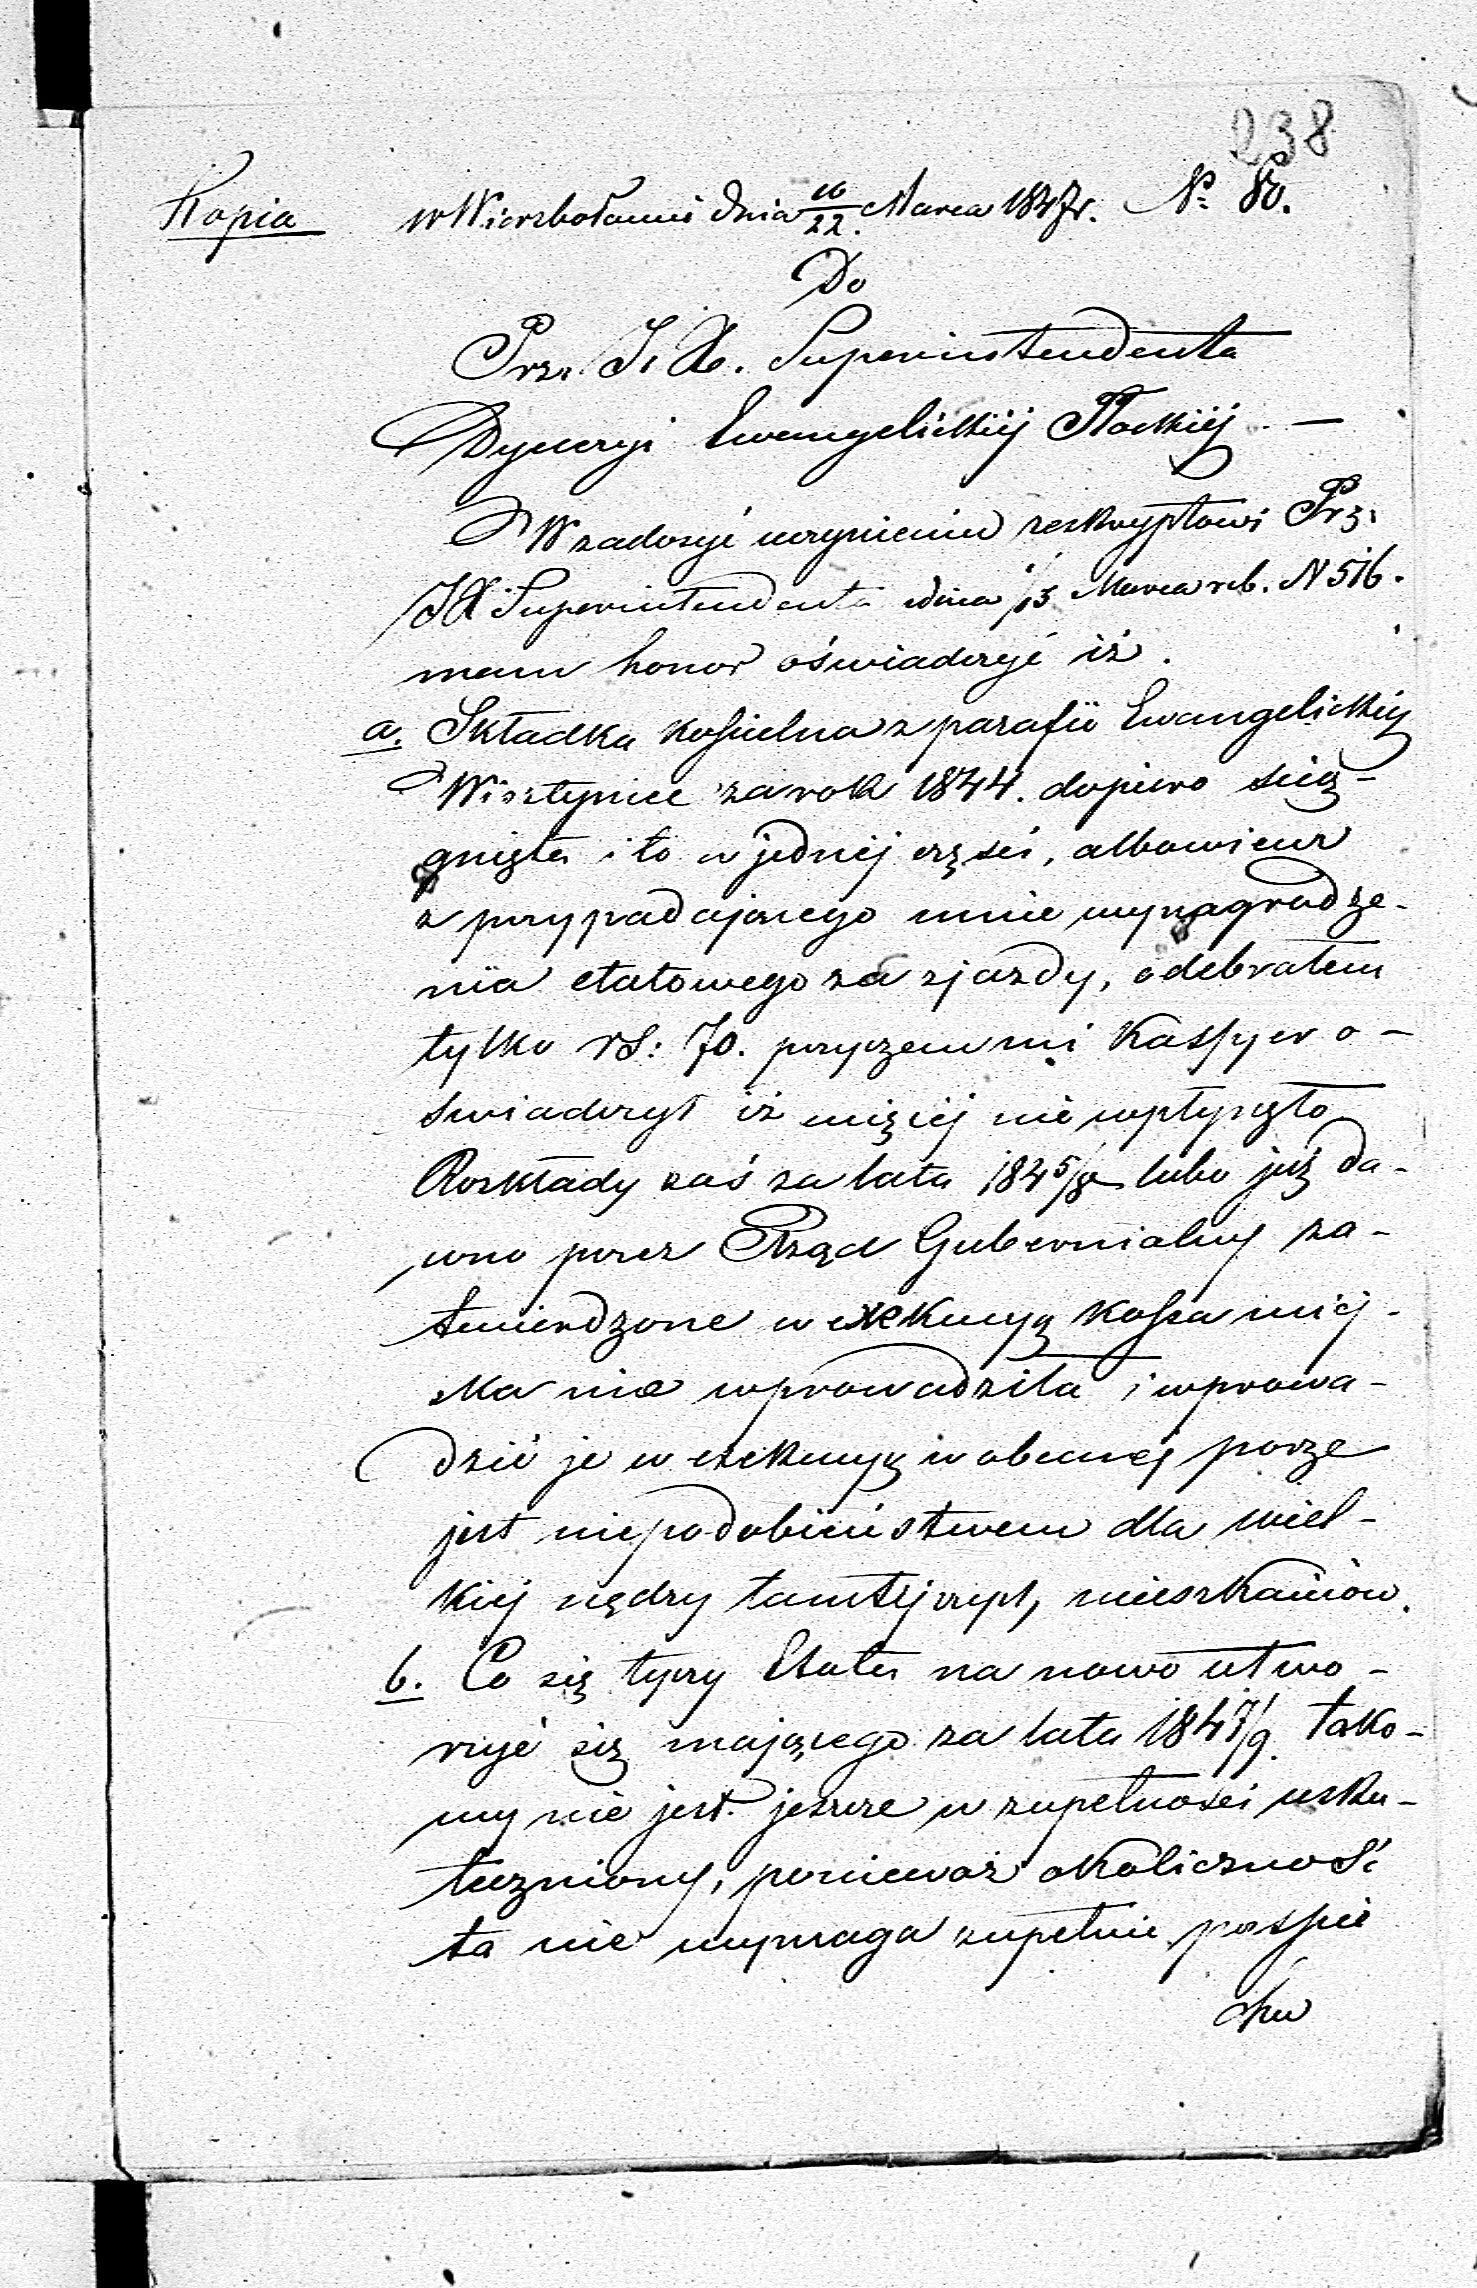 238
Kopia w Wierzbołowie dnia 10/22. Marca 1847 r. № 80.
Do
Prz. J. X. Superintendenta
Dyecezyi Ewangelickiéj Płockiéj. —
W zadosyć uczynieniu reskryptowi Prz.
JX Superintendenta z dnia 1/13 Marca r.b. N 516.
mam honor oświadczyć iż.
a. Składka kościelna z parafii Ewangelickiej
Wisztyniec za rok 1844. dopiero ściąg-
gnięta i to w jednéj części, albowiem
z przypadającego mnie wynagrodze-
nia etatowego za zjazdy, odebrałem
tylko rs: 70. przyczem mi Kassyer o-
świadczył iż więcéj nie wpłynęło
Rozkłady zaś za lata 1845/6 lubo już da-
wno przez Rząd Gubernialny za-
twierdzone w exekucyą Kassa miej-
ska nie wprowadziła i wprowa-
dzić je w exekucyą w obecnéj porze
jest niepodobieństwem dla wiel-
kiéj nędzy tamtejszych mieszkańców.
b. Co się tyczy Etatu na nowo utwo-
rzyć się mającego za lata 1847/9. tako-
wy nie jest jeszcze w zupełności usku-
teczniony, ponieważ okoliczność
ta nie wymaga zupełnie pośpie
chu